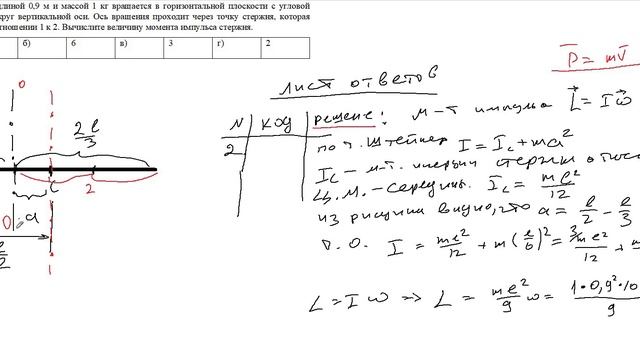 длиной 0,9 м и массой 1 кг вращается в горизонтальной плоскости с угловой
круг вертикальной оси. Ось вращения проходит через точку стержня, которая
отношении 1 к 2. Вычислите величину момента импульса стержня.
б) 6 в) 3 г) 2
P = mV
лист ответов
N код решение: м-т импульса L = I ω
2
по т. Штейнера I = I_c + ma²
I_c – м-т. инерции стержня относ
Ц. М. – середины. I_c = ml²/12
из рисунка видно, что a = l/2 - l/3
т. о. I = ml²/12 + m(l/6)² = 3/ml²/12 + m
L = I ω => L = ml²/9 ω = 1·0,9²·10/9
o
2l/3
c
2
O a
l/2